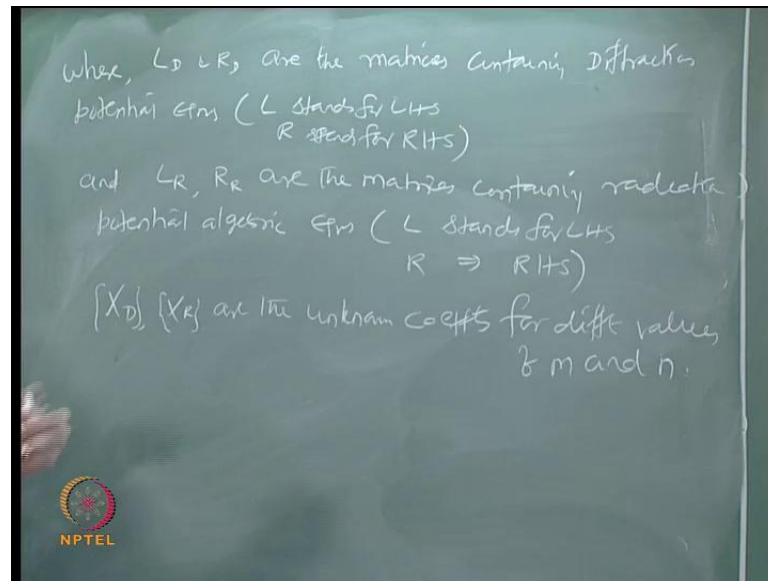 where, L_D & R_D are the matrices containing Diffraction
potential eqns ( L stands for LHS
R stands for RHS)
and L_R, R_R are the matrices containing radiation
potential algebric eqns ( L stands for LHS
R ⇒ RHS)
{X_D}, {X_R} are the unknown coeffts for difft values
of m and n.
NPTEL